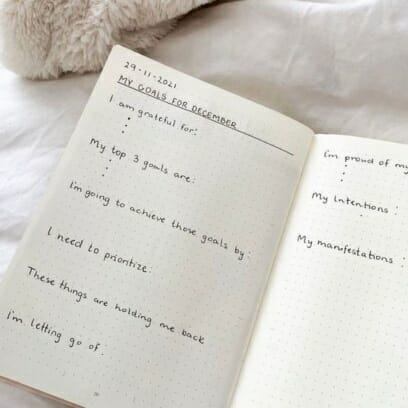 29-11-2021
MY GOALS FOR DECEMBER
I am grateful for:
My top 3 goals are:
I'm going to achieve those goals by:
I need to prioritize:
These things are holding me back
I'm letting go of:
I'm proud of my
My Intentions :
My manifestations :